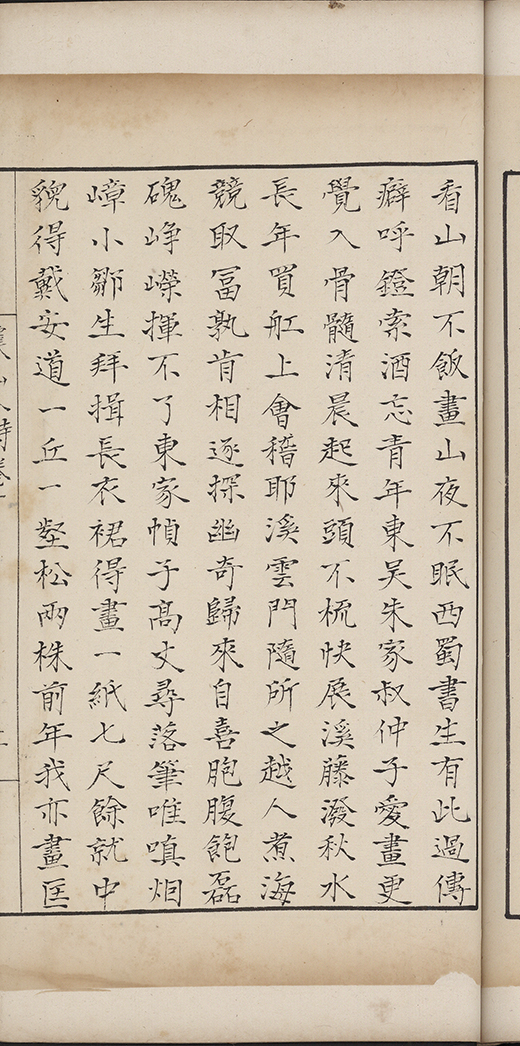 看山朝不飯畫山夜不眠西蜀書生有此過傳
癖呼鐙索酒忘青年東吳朱家叔仲子愛畫更
覺入骨髓清晨起來頭不梳快展溪藤潑秋水
長年買舡上會稽耶溪雲門隨所之越人煮海
競取冨孰肯相逐探幽奇歸來自喜胞腹飽磊
磈崢嶸揮不了東家幀子高丈尋落筆唯嗔烟
嶂小鄒生拜揖長衣裙得畫一紙七尺餘就中
貌得戴安道一丘一壑松兩株前年我亦畫匡